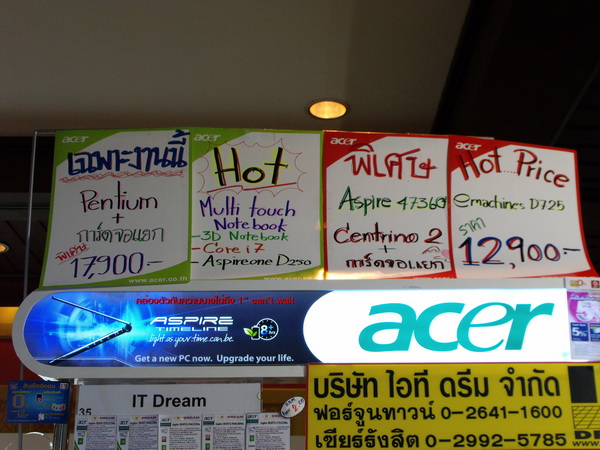 acer
เฉพาะงานนี้
Pentium
+
การ์ดจอแยก
พิเศษ
17,900.-
www.acer.co.th
acer
Hot
Multi touch
Notebook
-3D Notebook
-Core i7
-Aspire one D250
acer
พิเศษ
Aspire 4736G
Centrino 2
+
การ์ดจอแยก
acer
Hot Price
emachines D725
ราคา
12,900.-
คล่องตัวกับความบางไม่ถึง 1" can't wait
ASPIRE
TIMELINE
light as your time can be.
8+
Get a new PC now. Upgrade your life.
acer
5%
35
IT Dream
acer
acer
acer
acer
acer
บริษัท ไอที ดรีม จำกัด
ฟอร์จูนทาวน์ 0-2641-1600
เซียร์รังสิต 0-2992-5785